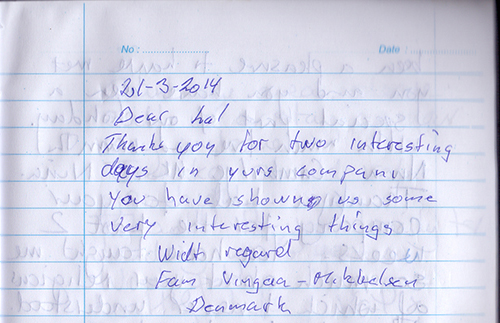 No : ........................ Date : ................
21-3-2014
Dear hal
Thanks you for two interesting
days in yurs kompani
You have shown us some
very interesting things
Widt regard
Fam Vingaa - Mikkelsen
Denmark